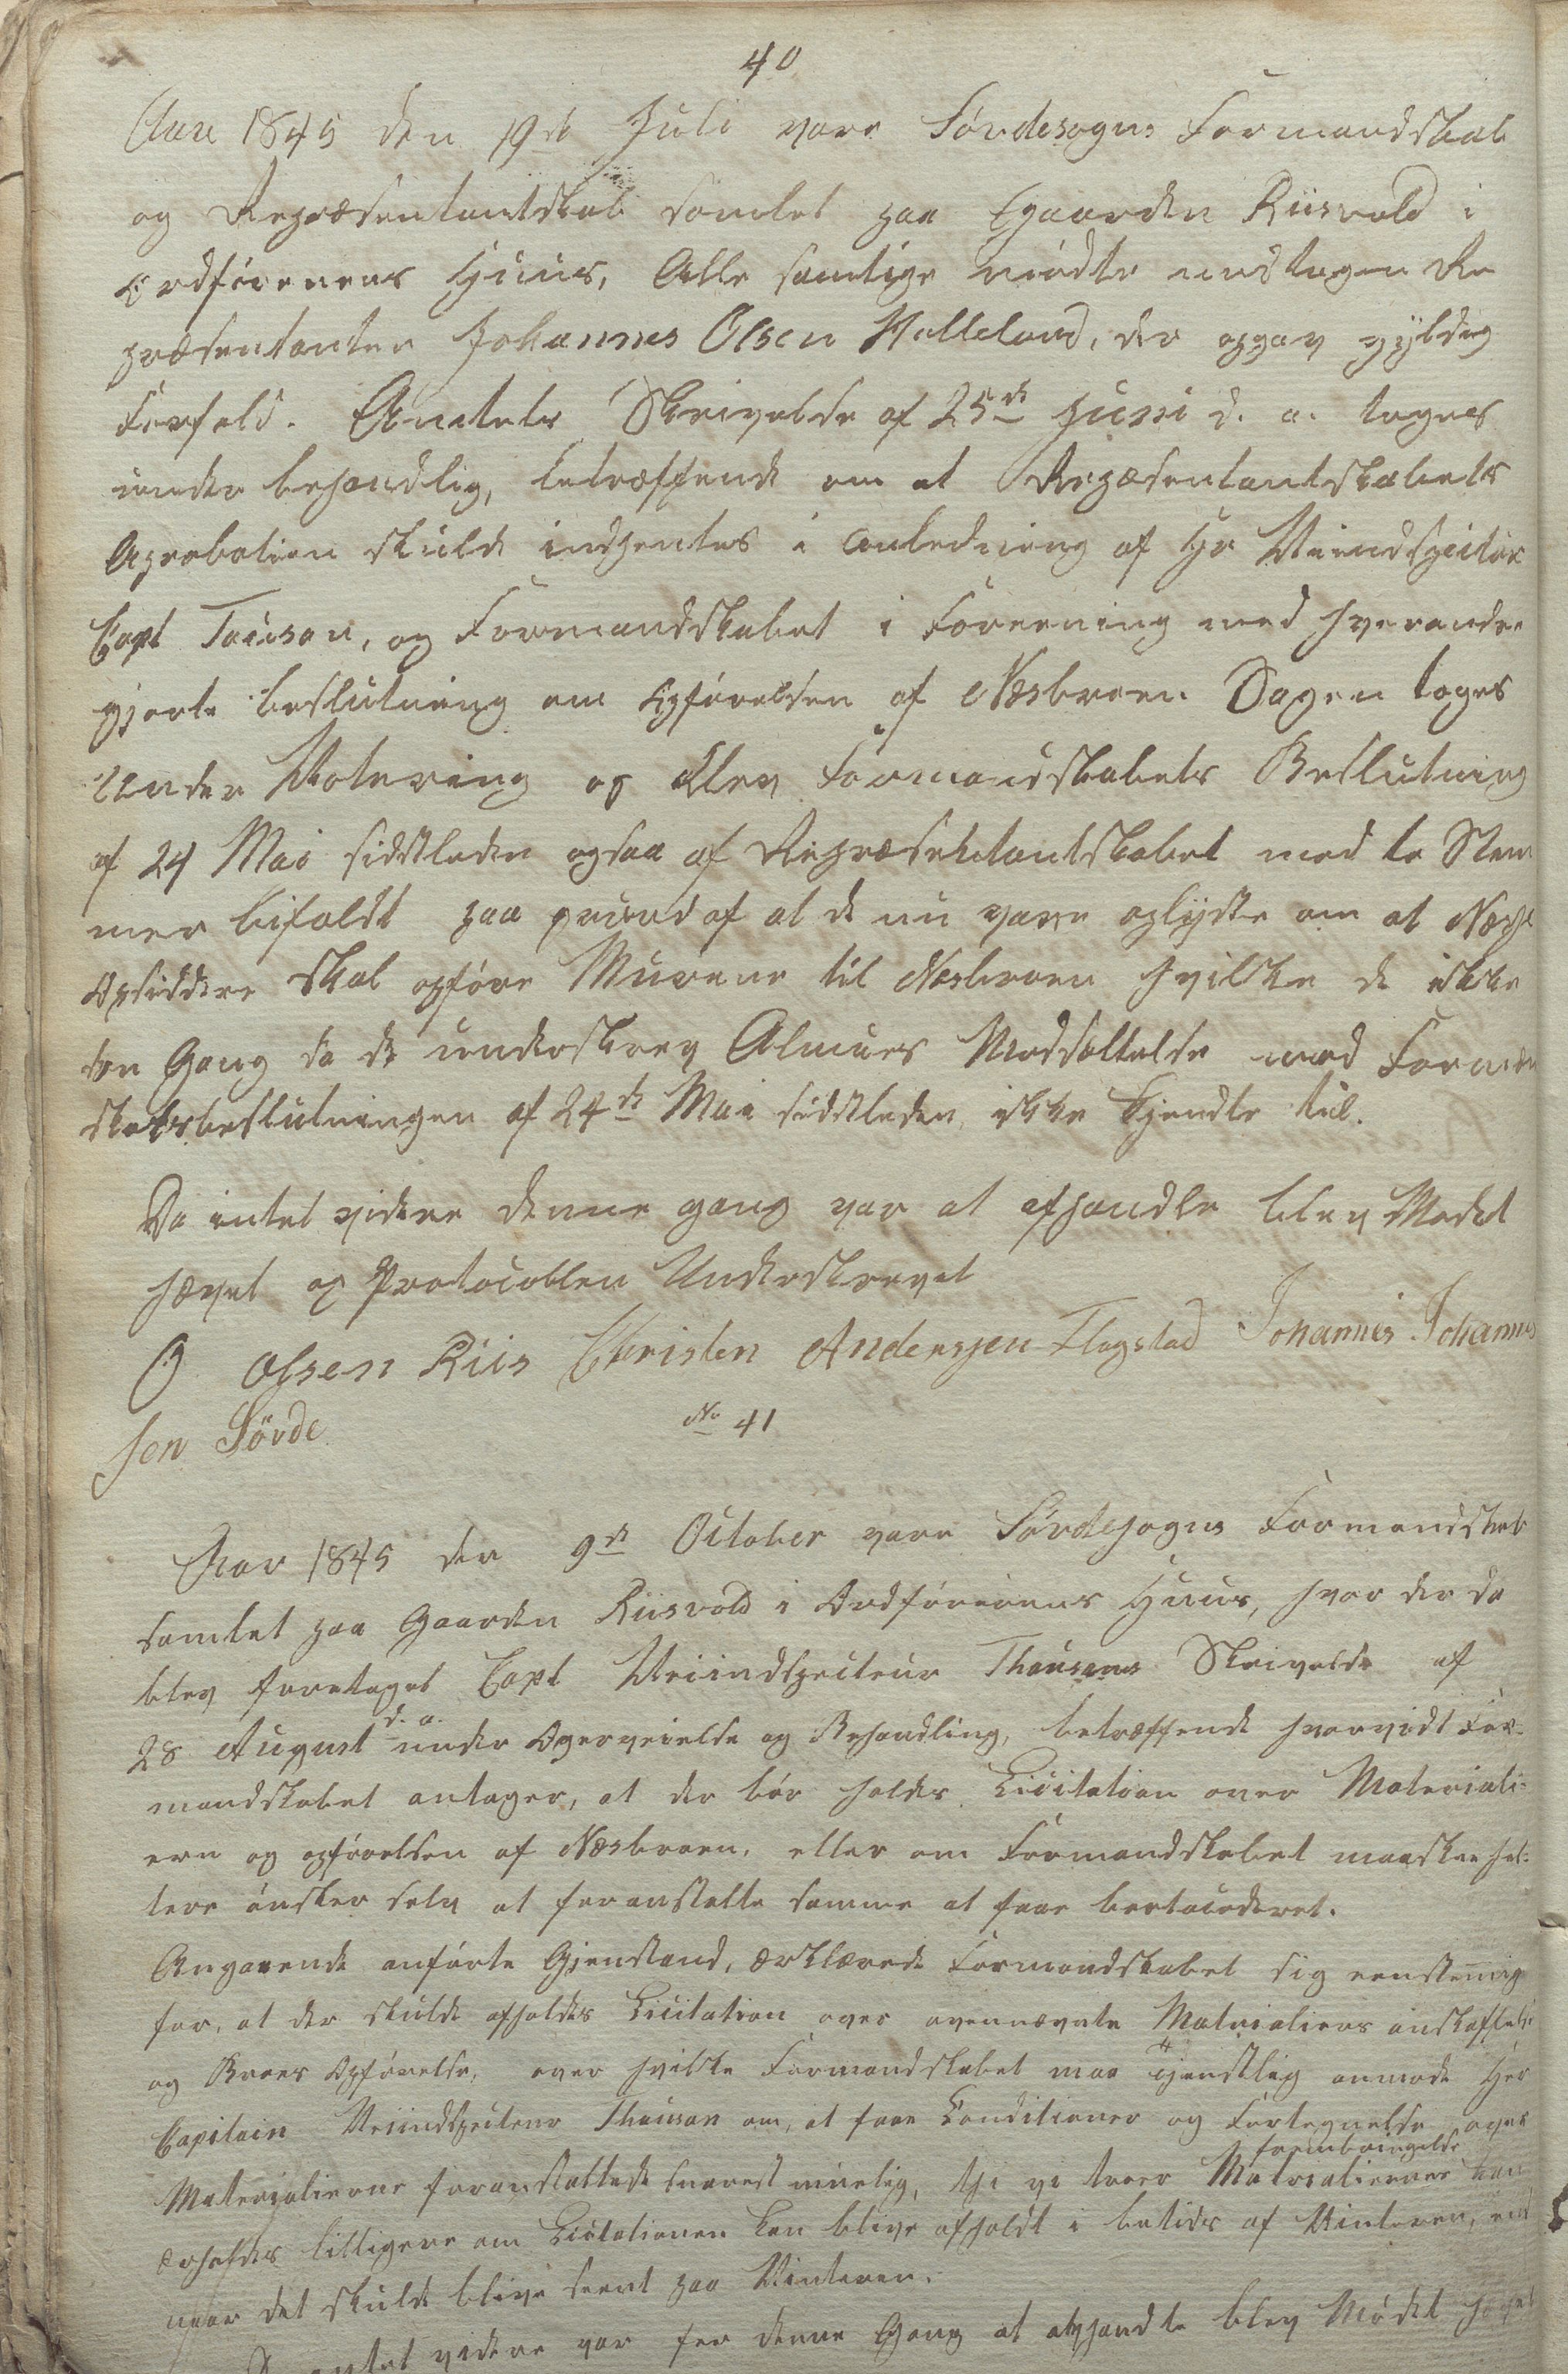 40
Aar 1845 den 19de Juli vare Sørdesogns Formandskab
og Repræsentantskab samlet paa Gaarden Riisvold i
Ordførerens Huus, Alle samtlige mødte undtagen Re
præsentanten Johannes Olsen Halleland, der opgav gyldig
Forfald. Amtets Skrivelse af 25de Juni d. a. toges
under behandlig, betræffende om at Repræsentantskabets
Aprobation skulde indhentes i anledning af Hr Veiindspecteur
Capt Tauson, og Formandskabet i Forening med hverandre
gjorte beslutning om Opførelsen af Næsbroen. Sagen toges
Under Votering og blev Formandskabets Beslutning
af 24 Mai sidstleden ogsaa af Repræsentantskabet med 10 Stem
mer bifaldt paa grund af at de nu vare oplyste om at
Opsiddere skal opføre Murene til Næsbroen hvilke de ikke
den Gang da de underskrev Almues Modsættelse mod Formand
skabsbeslutningen af 24de Mai sidstleden, ikke kjendte til.
Da intet videre denne gang var at afhandle blev Mødet
hævet og Protocollen Underskrevet
O Olsen Riis Christen Andersjen Flagstad Johannis Johannis
sen Sörde
No 41
Aar 1845 den 9de October vare Sørdesogns Formandskab
samlet paa Gaarden Riisvold i Ordførerens Huus, hvor der da
blev foretaget Capt Veiindspecteur Thausons Skrivelse af
28 August d. a. under Overveielse og Behandling, betræffende hvorvidt For-
mandskabet antager, at der bør holdes Licitation over Materiali-
ern og opførelsen af Næsbroen, eller om Formandskabet maaskee hel-
lere ønsker selv at foranstalte samme at faae bortacorderet.
Angaaende anførte Gjenstand, ærklærede Formandskabet sig eenstemig
for, at der skulde afholdes Licitation over ovennævnte Matrialiers anskaffelse
og Broes Opførelse, over hvilke Formandskabet maa tjenstlig anmode Hr
Capitain Veiindspecteur Thauson om, at faae Conditioner og Fortegnelse over
Materialierne foranstaltede snarest muelig, thi vi troer Matrialiernes frembringelse kan
ærholdes billigere om Licitationen kan blive afholdt i betids af Vinteren, end
naar det skulde blive seent paa Vinteren.
Da intet videre var for denne Gang at afhandle blev Mødet hævet